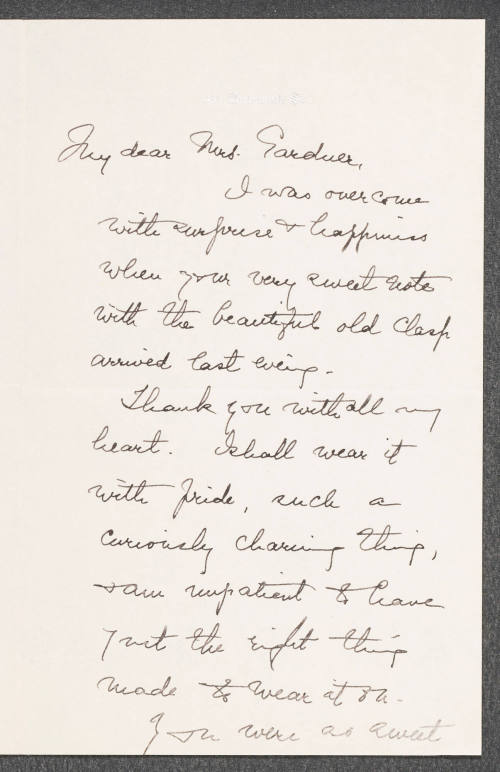 My dear Mrs. Gardner,
I was overcome
with surprise & happiness
when your very sweet note
with the beautiful old clasp
arrived last eveing.
Thank you with all my
heart. I shall wear it
with pride, such a
curiously charming thing,
& am impatient to have
just the right thing
made to wear it on.
You were as sweet